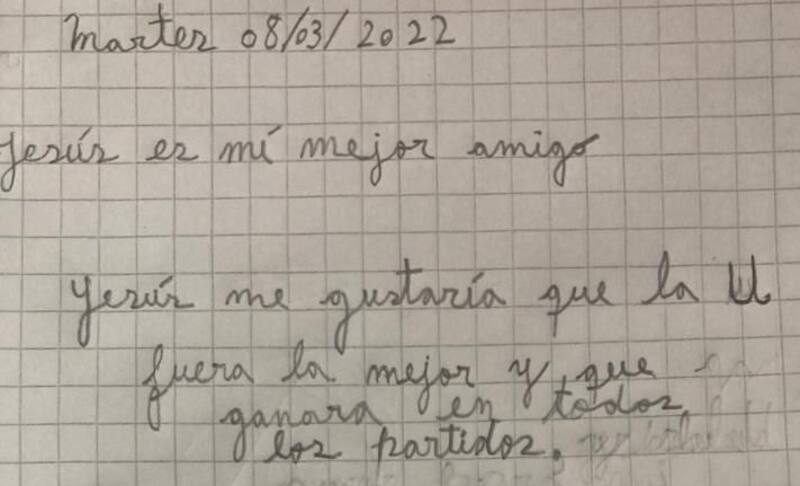 Martes 08/03/2022
Jesús es mí mejor amigo
Jesús me gustaría que la U
fuera la mejor y que
ganara en todos
los partidos.